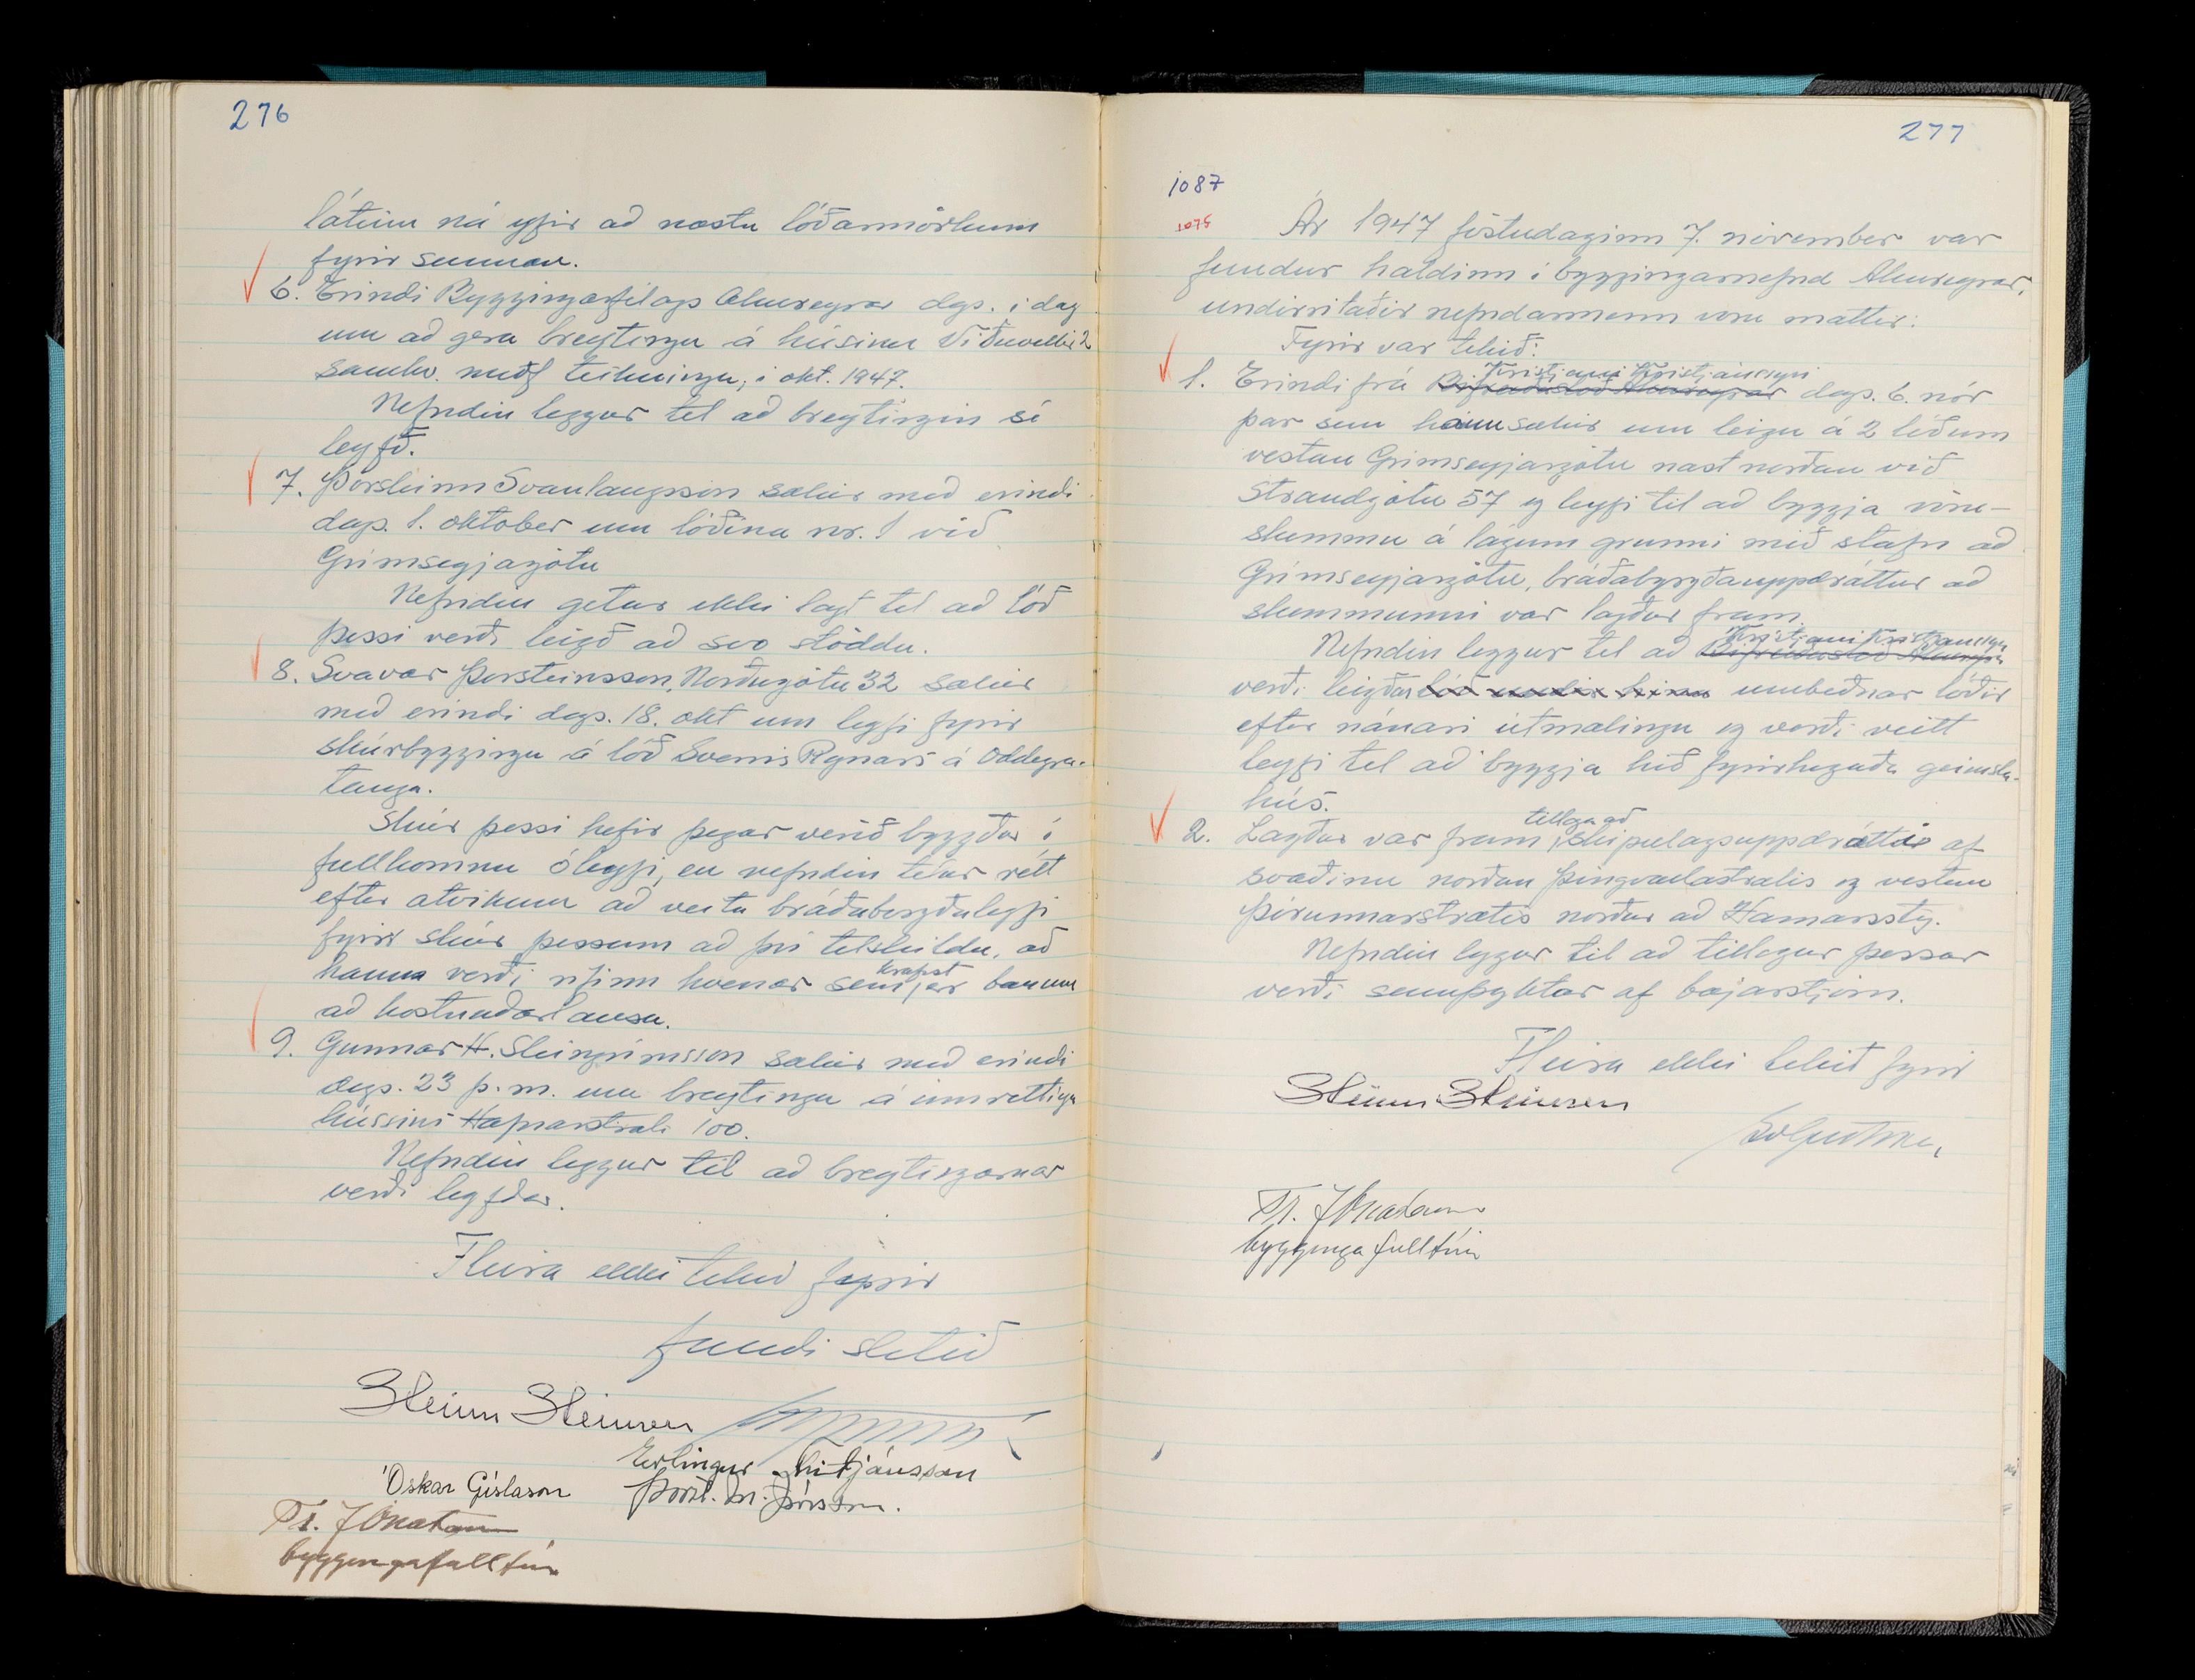 276
látinn ná yfir að næstu lóðarmörkum
fyrir sunnan.
6. Erindi Byggingarfélags Akureyrar dags. í dag
um að gera breytingu á húsinu Víðivellir 2
samkv. meðf teikningu, í okt. 1947.
Nefndin leggur til að breytingin sé
leyfð.
7. Þorsteinn Svanlaugsson sækir með erindi
dags. 1. október um lóðina nr. 1 við
Grímseyjargötu
Nefndin getur ekki lagt til að lóð
þessi verði leigð að svo stöddu.
8. Svavar Þorsteinsson, Norðurgötu 32 sækir
með erindi dags. 18. okt um leyfi fyrir
skúrbyggingu á lóð Sverris Ragnars á Oddeyrar-
tanga.
Skúr þessi hefir þegar verið byggður í
fullkomnu óleyfi, en nefndin telur rétt
eftir atvikum að veita bráðabirgðaleyfi
fyrir skúr þessum að því tilskildu, að
hann verði rifinn hvenær sem krafist er bænum
að kostnaðarlausu.
9. Gunnar H. Steingrímsson sækir með erindi
dags. 23 þ.m. um breytingu á innréttingu
hússins Hafnarstræti 100.
Nefndin leggur til að breytingarnar
verði leyfðar.
Fleira ekki tekið fyrir
fundi slitið
Steinn Steinsen
Erlingur Friðjónsson
Óskar Gíslason
Þorst. M. Jónsson.
Tr. Jónatanss
byggingafulltrúi
277
1087
1075
Ár 1947 föstudaginn 7. nóvember var
fundur haldinn í byggingarnefnd Akureyrar,
undirritaðir nefndarmenn voru mættir:
Fyrir var tekið:
Kristjáni Kristjánssyni
1. Erindi frá Bifreiðastöð Akureyrar dags. 6. nóv
þar sem hann sækir um leigu á 2 lóðum
vestan Grímseyjargötu næst norðan við
Strandgötu 57 og leyfi til að byggja vöru-
skemmu á lágum grunni með stafn að
Grímseyjargötu, bráðabyrgðauppdráttur að
skemmunni var lagður fram.
Kristjáni Kristjánssyni
Nefndin leggur til að Bifreiðastöð Akureyrar
verði leigðar umbeðnar lóðir
eftir nánari útmælingu og verði veitt
leyfi til að byggja hið fyrirhugaða geimslu-
hús.
tillaga að
2. Lagður var fram skipulagsuppdráttur af
svæðinu norðan Þingvallastrætis og vestan
Þórunnarstrætis norður að Hamarsstíg.
Nefndin leggur til að tillögur þessar
verði samþyktar af bæjarstjórn.
Fleira ekki tekið fyrir
Steinn Steinsen
Tr. Jónatanss
byggingafulltrúi